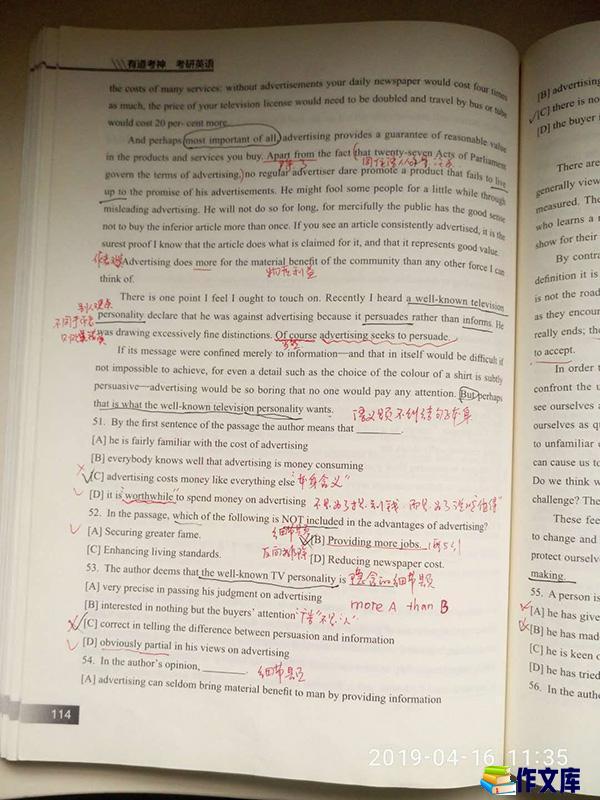 有道考神 考研英语
the costs of many services: without advertisements your daily newspaper would cost four times
as much, the price of your television license would need to be doubled and travel by bus or tube
would cost 20 per- cent more.
And perhaps most important of all, advertising provides a guarantee of reasonable value
in the products and services you buy. Apart from the fact that twenty-seven Acts of Parliament
govern the terms of advertising, no regular advertiser dare promote a product that fails to live
up to the promise of his advertisements. He might fool some people for a little while through
misleading advertising. He will not do so for long, for mercifully the public has the good sense
not to buy the inferior article more than once. If you see an article consistently advertised, it is the
surest proof I know that the article does what is claimed for it, and that it represents good value.
Advertising does more for the material benefit of the community than any other force I can
物质利益
think of.
There is one point I feel I ought to touch on. Recently I heard a well-known television
personality declare that he was against advertising because it persuades rather than informs. He
was drawing excessively fine distinctions. Of course advertising seeks to persuade.
If its message were confined merely to information—and that in itself would be difficult if
not impossible to achieve, for even a detail such as the choice of the colour of a shirt is subtly
persuasive—advertising would be so boring that no one would pay any attention. But perhaps
that is what the well-known television personality wants.
51. By the first sentence of the passage the author means that
[A] he is fairly familiar with the cost of advertising
[B] everybody knows well that advertising is money consuming
[C] advertising costs money like everything else "本身含义"
[D] it is worthwhile to spend money on advertising
52. In the passage, which of the following is NOT included in the advantages of advertising?
细节题
[A] Securing greater fame. [B] Providing more jobs.
[C] Enhancing living standards. [D] Reducing newspaper cost.
53. The author deems that the well-known TV personality is 隐含的细节题
[A] very precise in passing his judgment on advertising
more A than B
[B] interested in nothing but the buyers' attention
[C] correct in telling the difference between persuasion and information
[D] obviously partial in his views on advertising
54. In the author's opinion, 细节题
[A] advertising can seldom bring material benefit to man by providing information
114
[B] advertising
[C] there is no
[D] the buyer i
There are
generally view
measured. The
who learns a r
show for their
By contra
definition it is
is not the road
as they encour
really ends; the
to accept.
In order t
confront the u
see ourselves a
ourselves as qu
to unfamiliar c
can cause us to
Do we think w
challenge? The
These feel
to change and
protect ourselve
making.
55. A person is
[A] he has give
[B] he has mad
[C] he is keen o
[D] he has tried
56. In the autho
2019-04-16 11:35
作文库